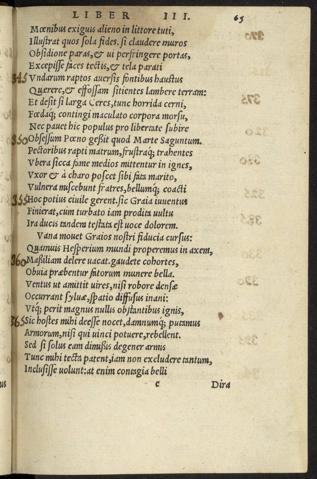 LIBER III. 65
Mœnibus exiguis alieno in littore tuti,
Illustrat quos sola fides. si claudere muros
Obsidione paras, & ui perfringere portas,
Excepisse faces tectis, & tela parati
345 Vndarum raptos auersis fontibus haustus
Quærere, & effossam sitientes lambere terram:
Et desit si larga Ceres, tunc horrida cerni,
Fœdaq; contingi maculato corpora morsu,
Nec pauet hic populus pro libertate subire
350 Obsessum Pœno gessit quod Marte Saguntum.
Pectoribus rapti matrum, frustraq; trahentes
Vbera sicca fame medios mittentur in ignes,
Vxor & à charo poscet sibi fata marito,
Vulnera miscebunt fratres, bellumq; coacti
355 Hoc potius ciuile gerent. sic Graia iuuentus
Finierat, cum turbato iam prodita uultu
Ira ducis tandem testata est uoce dolorem.
Vana mouet Graios nostri fiducia cursus:
Quamuis Hesperium mundi properemus in axem,
360 Massiliam delere uacat. gaudete cohortes,
Obuia præbentur fatorum munere bella.
Ventus ut amittit uires, nisi robore densæ
Occurrant syluæ, spatio diffusus inani:
Vtq; perit magnus nullis obstantibus ignis,
365 Sic hostes mihi deesse nocet, damnumq; putamus
Armorum, nisi qui uinci potuere, rebellent.
Sed si solus eam dimissis degener armis
Tunc mihi tecta patent, iam non excludere tantum,
Inclusisse uolunt: at enim contagia belli
c Dira